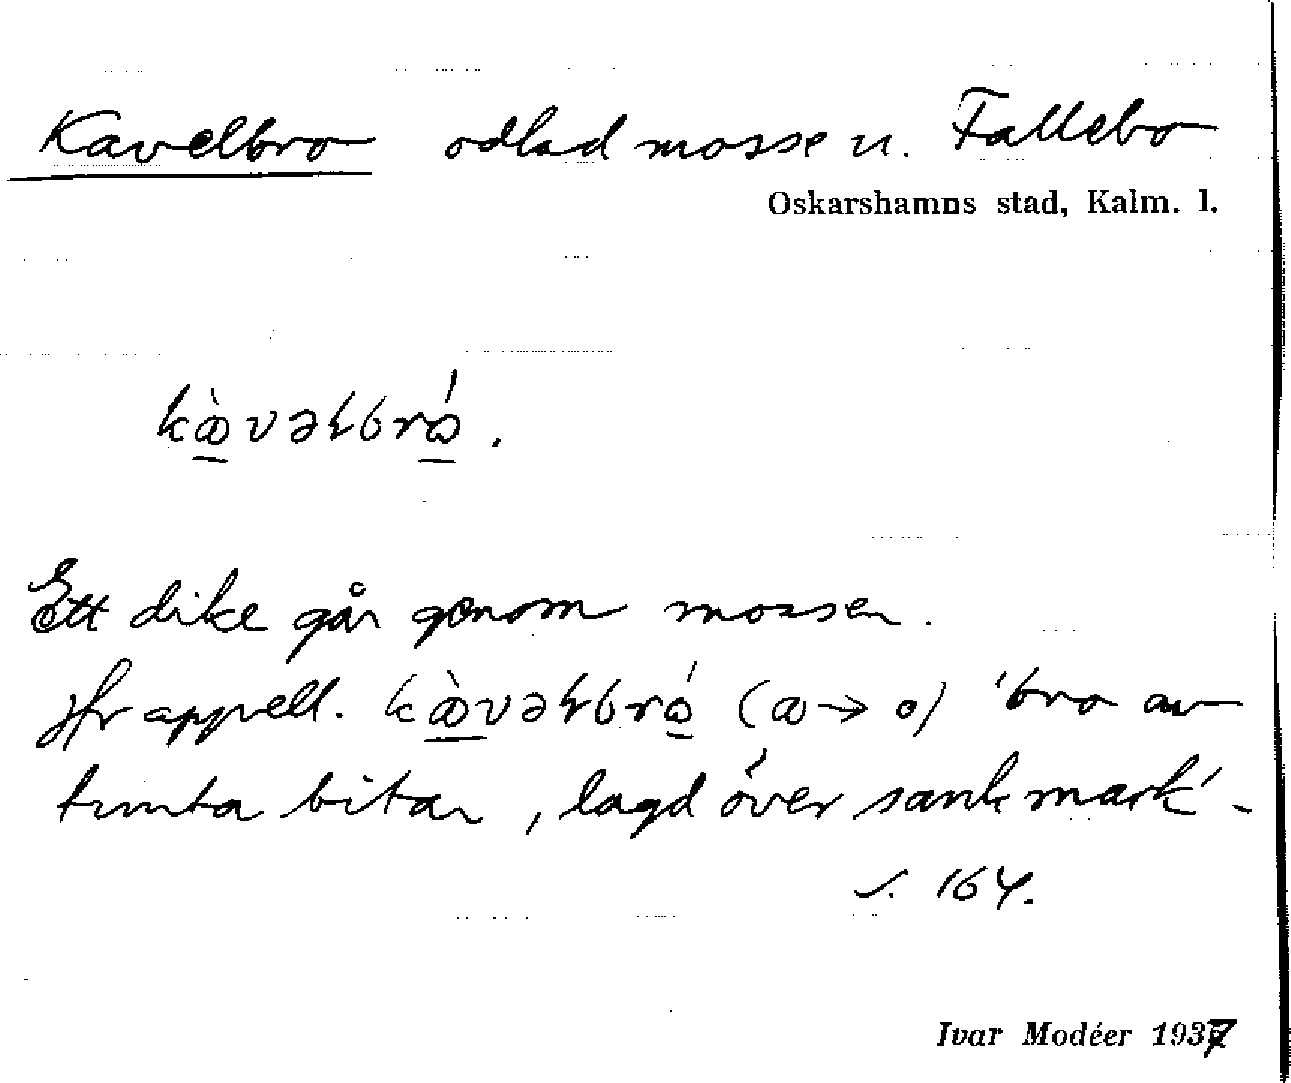 Kavelbro odlad mosse u. Fallebo
Oskarshamns stad, Kalm. l.
kꭃ̀vəłbrꭃ́.
Ett dike går genom mossen.
Jfr appell. kꭃ̀vəłbrꭃ́ (ꭃ→o) 'bro av
tunta bitar, lagd över sank mark'-
s. 164.
Ivar Modéer 1937